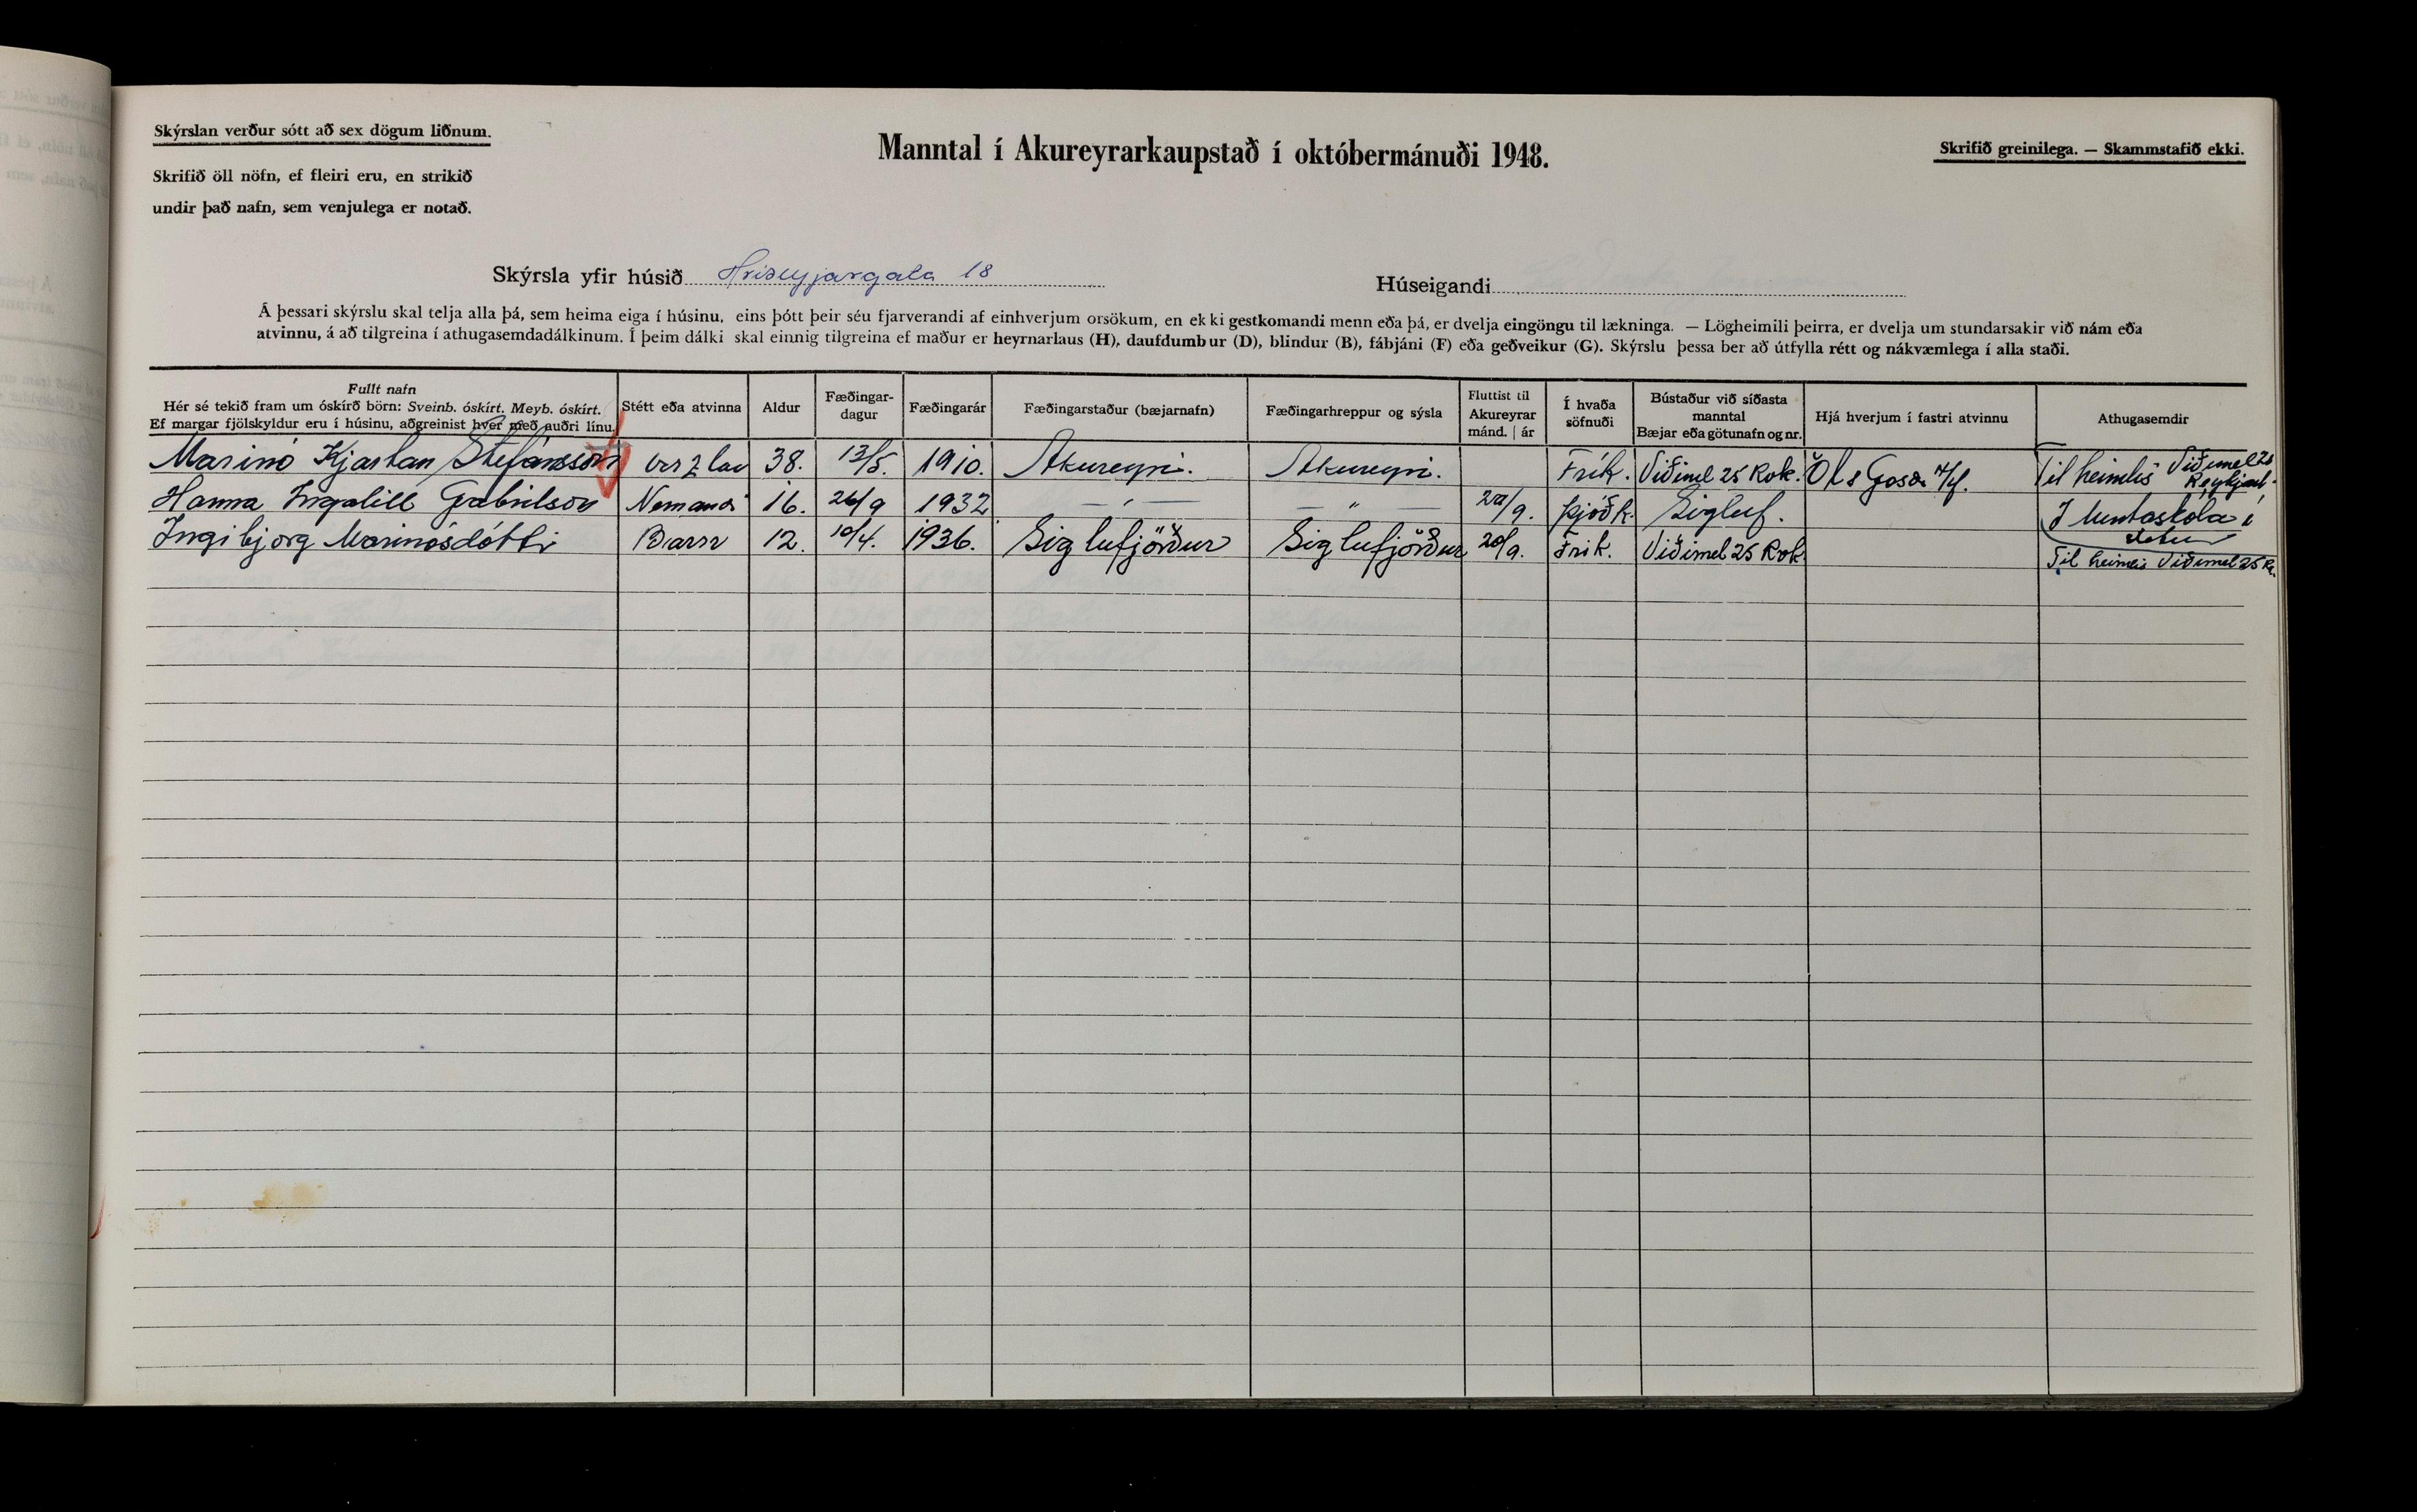 Skýrslan verður sótt að sex dögum liðnum.
Skrifið öll nöfn, ef fleiri eru, en strikið
undir það nafn, sem venjulega er notað.
Manntal í Akureyrarkaupstað í októbermánuði 1948.
Skrifið greinilega. — Skammstafið ekki.
Skýrsla yfir húsið Hríseyjargata 18
Húseigandi
Á þessari skýrslu skal telja alla þá, sem heima eiga í húsinu, eins þótt þeir séu fjarverandi af einhverjum orsökum, en ekki gestkomandi menn eða þá, er dvelja eingöngu til lækninga. — Lögheimili þeirra, er dvelja um stundarsakir við nám eða
atvinnu, á að tilgreina í athugasemdadálkinum. Í þeim dálki skal einnig tilgreina ef maður er heyrnarlaus (H), daufdumbur (D), blindur (B), fábjáni (F) eða geðveikur (G). Skýrslu þessa ber að útfylla rétt og nákvæmlega í alla staði.
Fullt nafn
Hér sé tekið fram um óskírð börn: Sveinb. óskírt. Meyb. óskírt.
Ef margar fjölskyldur eru í húsinu, aðgreinist hver með auðri línu.
Stétt eða atvinna
Aldur
Fæðingar-
dagur
Fæðingarár
Fæðingarstaður (bæjarnafn)
Fæðingarhreppur og sýsla
Fluttist til
Akureyrar
mánd. | ár
Í hvaða
söfnuði
Bústaður við síðasta
manntal
Bæjar eða götunafn og nr.
Hjá hverjum í fastri atvinnu
Athugasemdir
Marinó Kjartan Stefánsson 38. 13/5. 1910. Akureyri. Akureyri. Frík. Víðimel 25 Rvk. Til heimilis Víðimel 25 Reykjavík.
Hanna Ingalill Gabrilson Nemandi 16. 26/9 1932 — " — 20/9. Þjóðk. Sigluf. Í Mentaskóla í vetur
Ingibjorg Marinósdóttir Barn 12. 10/4. 1936. Siglufjörður Siglufjörður 20/9. Frík. Víðimel 25 Rvk Til heimilis Víðimel 25 Rv.